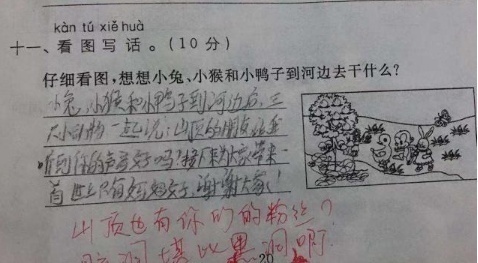 kàn tú xiě huà
十一、看图写话。(10分)
仔细看图,想想小兔、小猴和小鸭子到河边去干什么?
小兔、小猴和小鸭子到河边后,三
只小动物一起说:山顶的朋友
听到你的声音好吗?接下来为大家带来一
首世上只有妈妈好,谢谢大家!
山顶也有你的的粉丝?
脑洞堪比黑洞啊
20